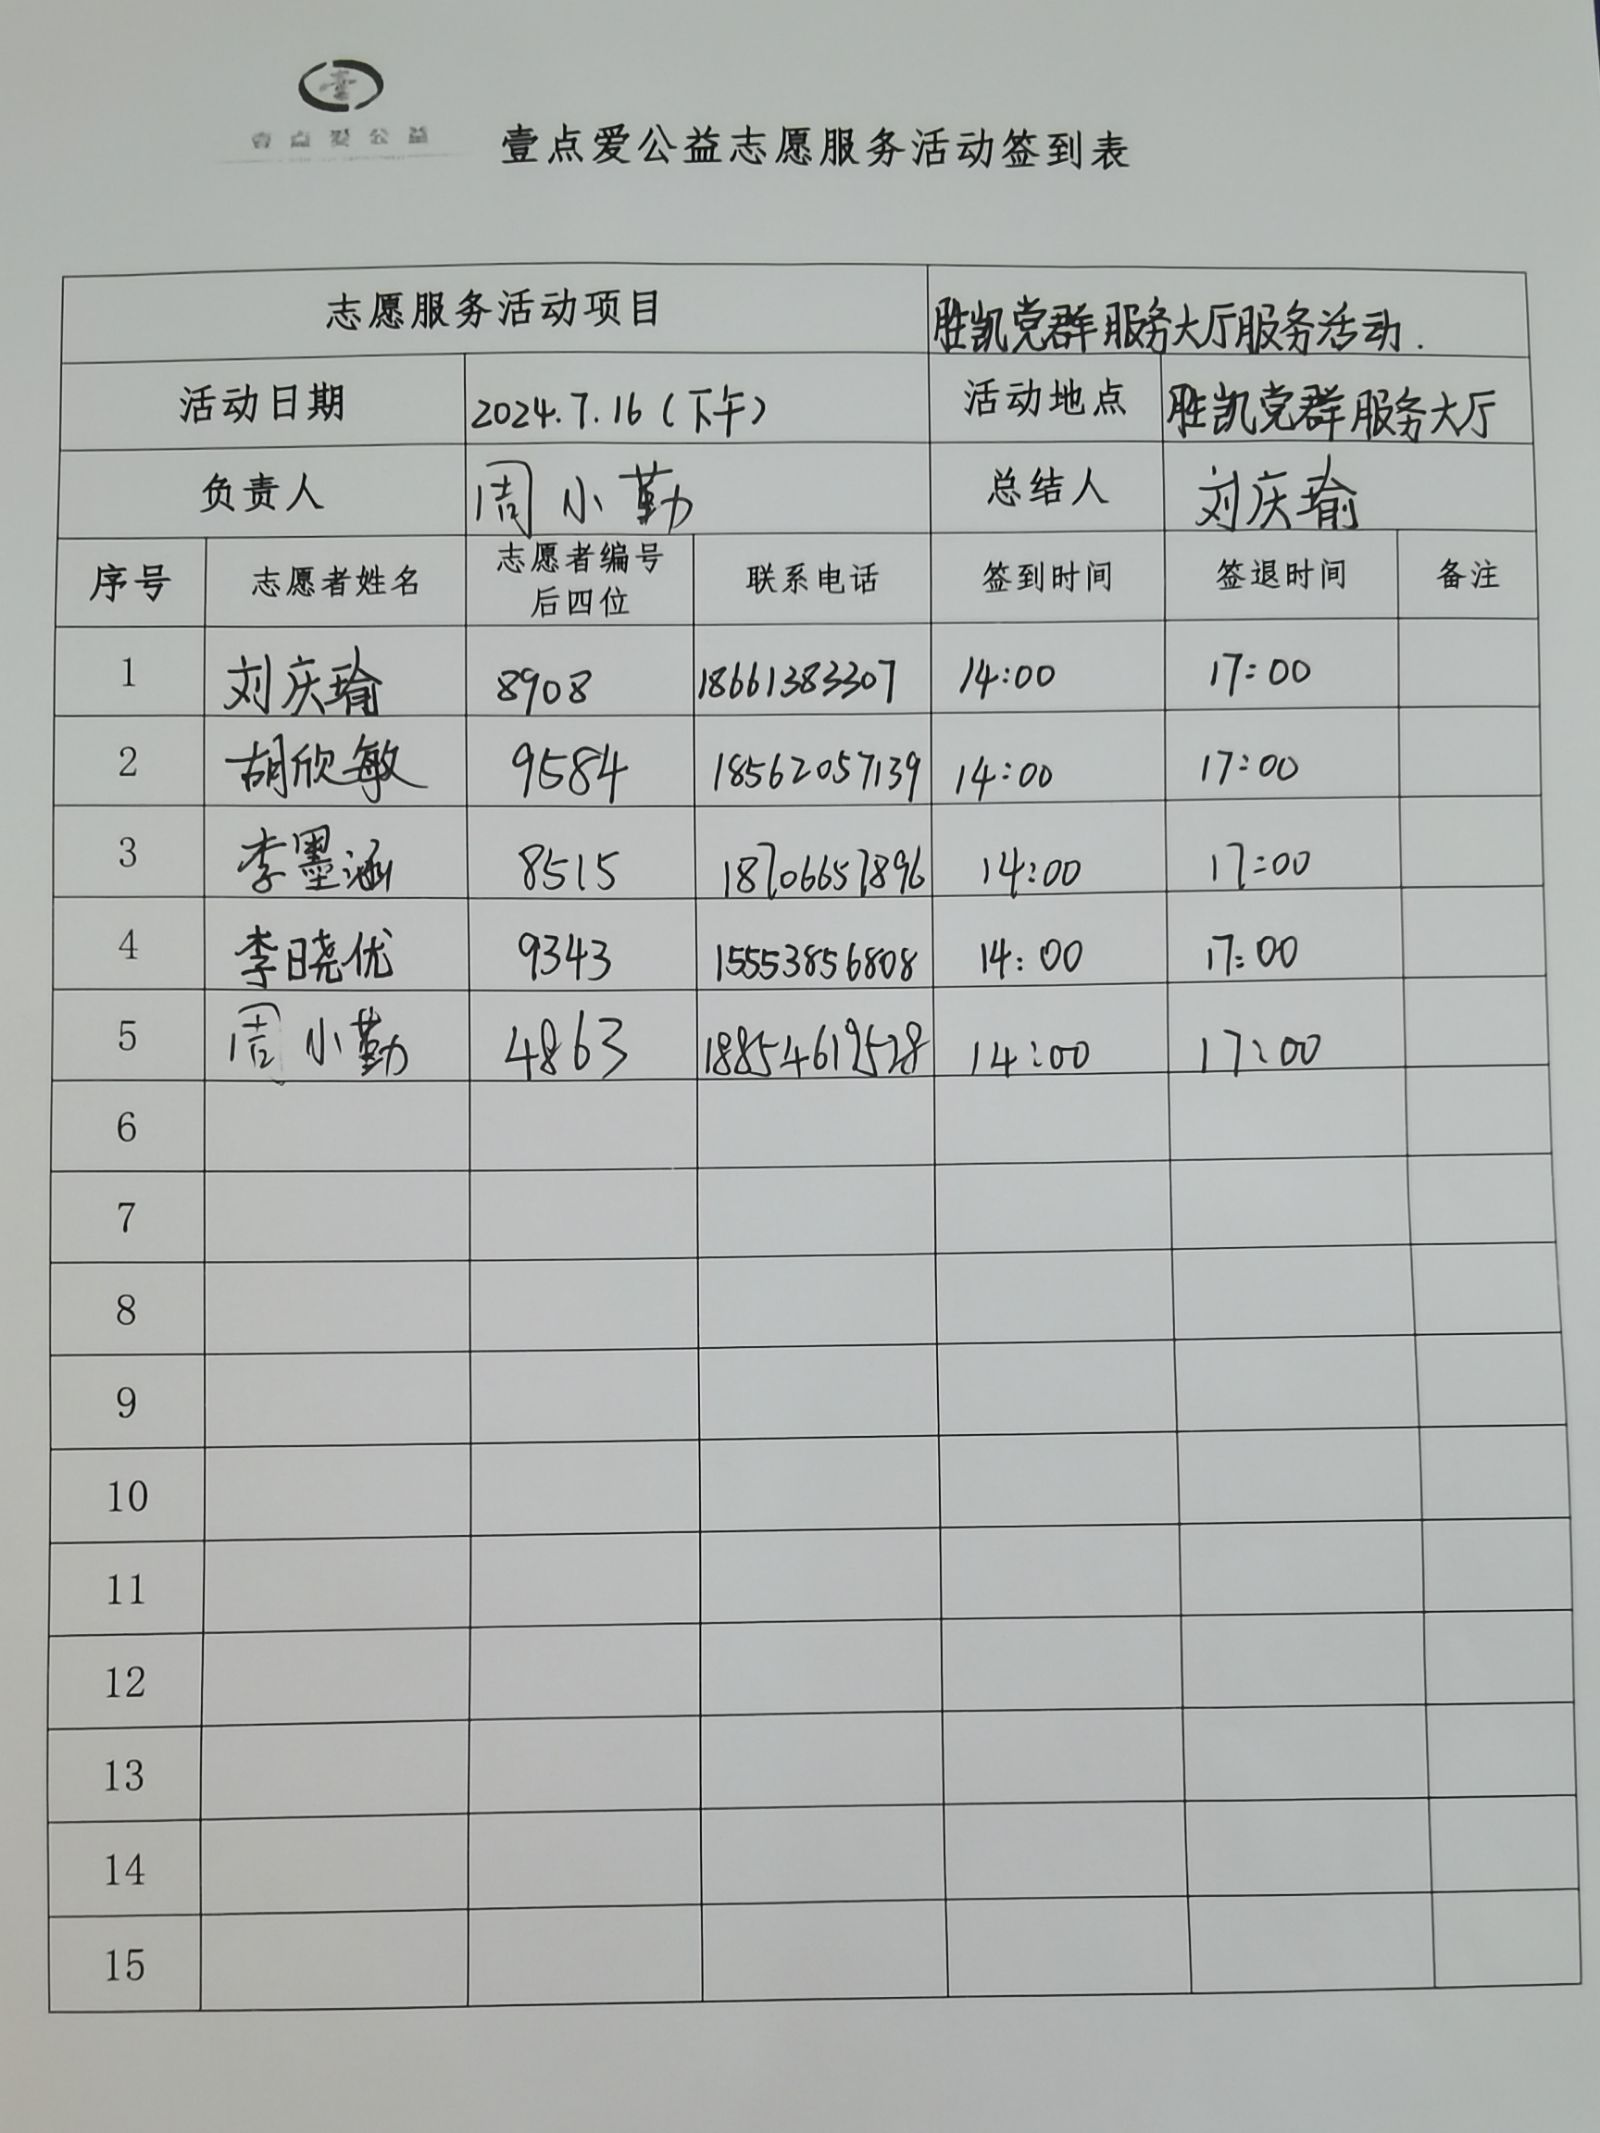 壹点爱公益
壹点爱公益志愿服务活动签到表
志愿服务活动项目 胜凯党群服务大厅服务活动.
活动日期 2024.7.16(下午) 活动地点 胜凯党群服务大厅
负责人 周小勤 总结人 刘庆瑜
序号 志愿者姓名 志愿者编号后四位 联系电话 签到时间 签退时间 备注
1 刘庆瑜 8908 18661383307 14:00 17:00
2 胡欣敏 9584 18562057139 14:00 17:00
3 李墨涵 8515 18706657896 14:00 17:00
4 李晓优 9343 15553856808 14:00 17:00
5 周小勤 4863 18854619528 14:00 17:00
6
7
8
9
10
11
12
13
14
15